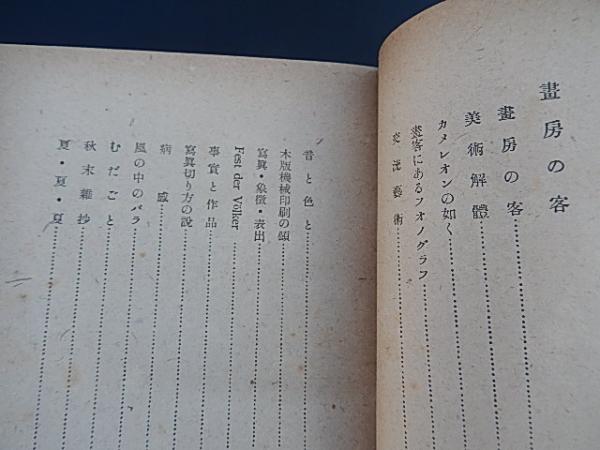 畫房の客
畫房の客
美術解體
カメレオンの如く
畫客にあるフオノグラフ
交流藝術
音と色と
木版機械印刷の頌
寫眞・象徴・表出
Fest der Völker
事實と作品
寫眞切り方の説
病感
風の中のバラ
むだごと
秋末雜抄
夏・夏・夏